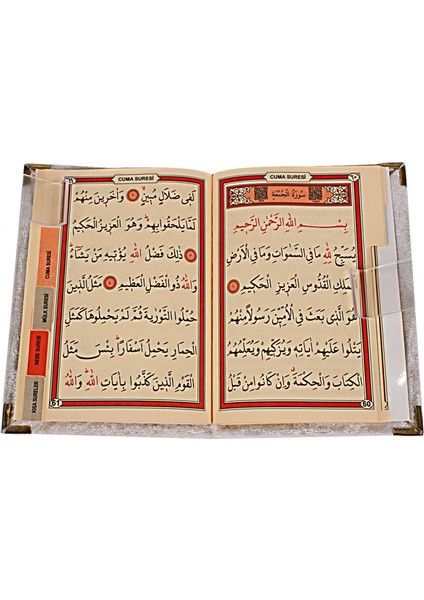 CUMA SURESİ
٦٠
سُورَةُ الْجُمُعَةِ
بِسْمِ اللهِ الرَّحْمٰنِ الرَّحِيمِ
يُسَبِّحُ لِلهِ مَا فِي السَّمٰوَاتِ وَمَا فِي الْاَرْضِ
الْمَلِكِ الْقُدُّوسِ الْعَزِيزِ الْحَكِيمِ ١
هُوَ الَّذِي بَعَثَ فِي الْاُمِّيِّنَ رَسُولًا مِنْهُمْ
يَتْلُوا عَلَيْهِمْ اٰيَاتِهِ وَيُزَكِّيهِمْ وَيُعَلِّمُهُمُ
الْكِتَابَ وَالْحِكْمَةَ وَاِنْ كَانُوا مِنْ قَبْلُ
60
CUMA SURESİ
٦١
لَفِي ضَلَالٍ مُبِينٍ ٢ وَاٰخَرِينَ مِنْهُمْ
لَمَّا يَلْحَقُوا بِهِمْ وَهُوَ الْعَزِيزُ الْحَكِيمُ
٣ ذٰلِكَ فَضْلُ اللهِ يُؤْتِيهِ مَنْ يَشَاءُ
وَاللهُ ذُو الْفَضْلِ الْعَظِيمِ ٤ مَثَلُ الَّذِينَ
حُمِّلُوا التَّوْرٰيةَ ثُمَّ لَمْ يَحْمِلُوهَا كَمَثَلِ
الْحِمَارِ يَحْمِلُ اَسْفَارًا بِئْسَ مَثَلُ
الْقَوْمِ الَّذِينَ كَذَّبُوا بِاٰيَاتِ اللهِ وَاللهُ
61
CUMA SURESİ
MÜLK SURESİ
NEBE SURESİ
KISA SURELER